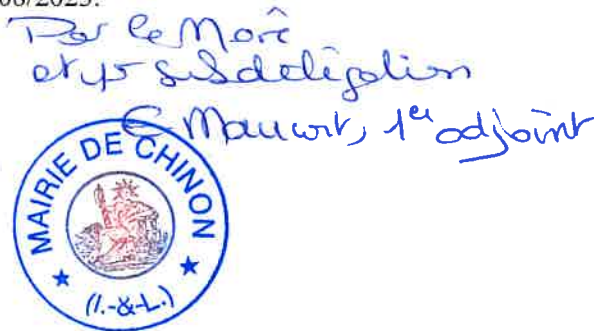 08/2023.
Par le Mare
et pr subdélégation
E Maucort, 1er adjoint
MAIRIE DE CHINON
(I.-&-L.)